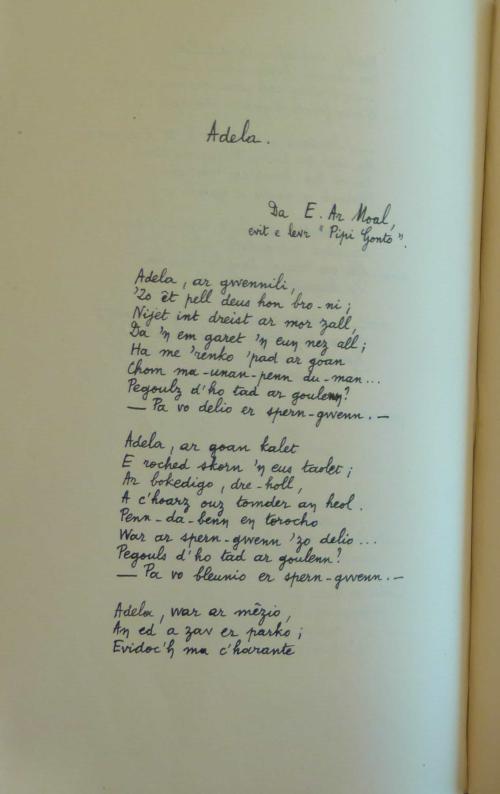 Adela.
Da E. Ar Moal,
evit e levr "Pipi Gonto".
Adela, ar gwennili,
'Zo êt pell deus hon bro-ni;
Nijet int dreist ar mor zall,
Da 'n em garet 'n eun nez all;
Ha me 'renko 'pad ar goan
Chom ma-unan-penn du-man...
Pegoulz d'ho tad ar goulenn?
— Pa vo delio er spern-gwenn. —
Adela, ar goan kalet
E roched skorn 'n eus taolet;
Ar bokedigo, dre-holl,
A c'hoarz ouz tomder an heol.
Penn-da-benn en torocho
War ar spern-gwenn 'zo delio...
Pegouls d'ho tad ar goulenn?
— Pa vo bleunio er spern-gwenn. —
Adela, war ar mêzio,
An ed a zav er parko;
Evidoc'h ma c'harante